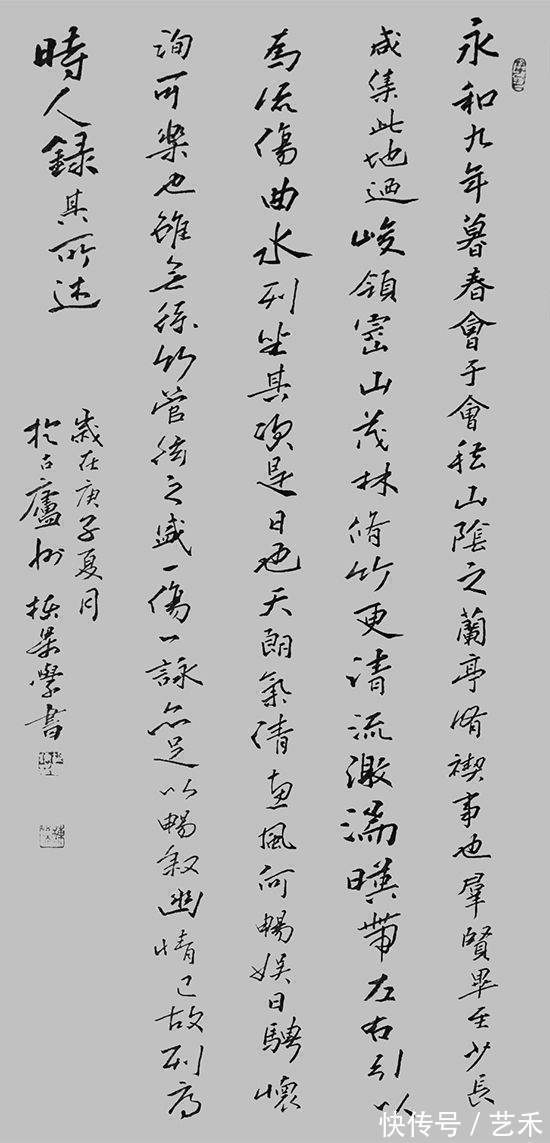 永和九年暮春會于會稽山陰之蘭亭脩禊事也羣賢畢至少長
咸集此地迺峻領崇山茂林脩竹更清流激湍暎帶左右引以
為流傷曲水列坐其次是日也天朗氣清惠風何暢娛日騁懷
洵可樂也雖無絲竹管弦之盛一傷一詠亦足以暢叙幽情已故列序
時人錄其所述
歲在庚子夏月
於古廬州景學書
快传号 / 艺禾